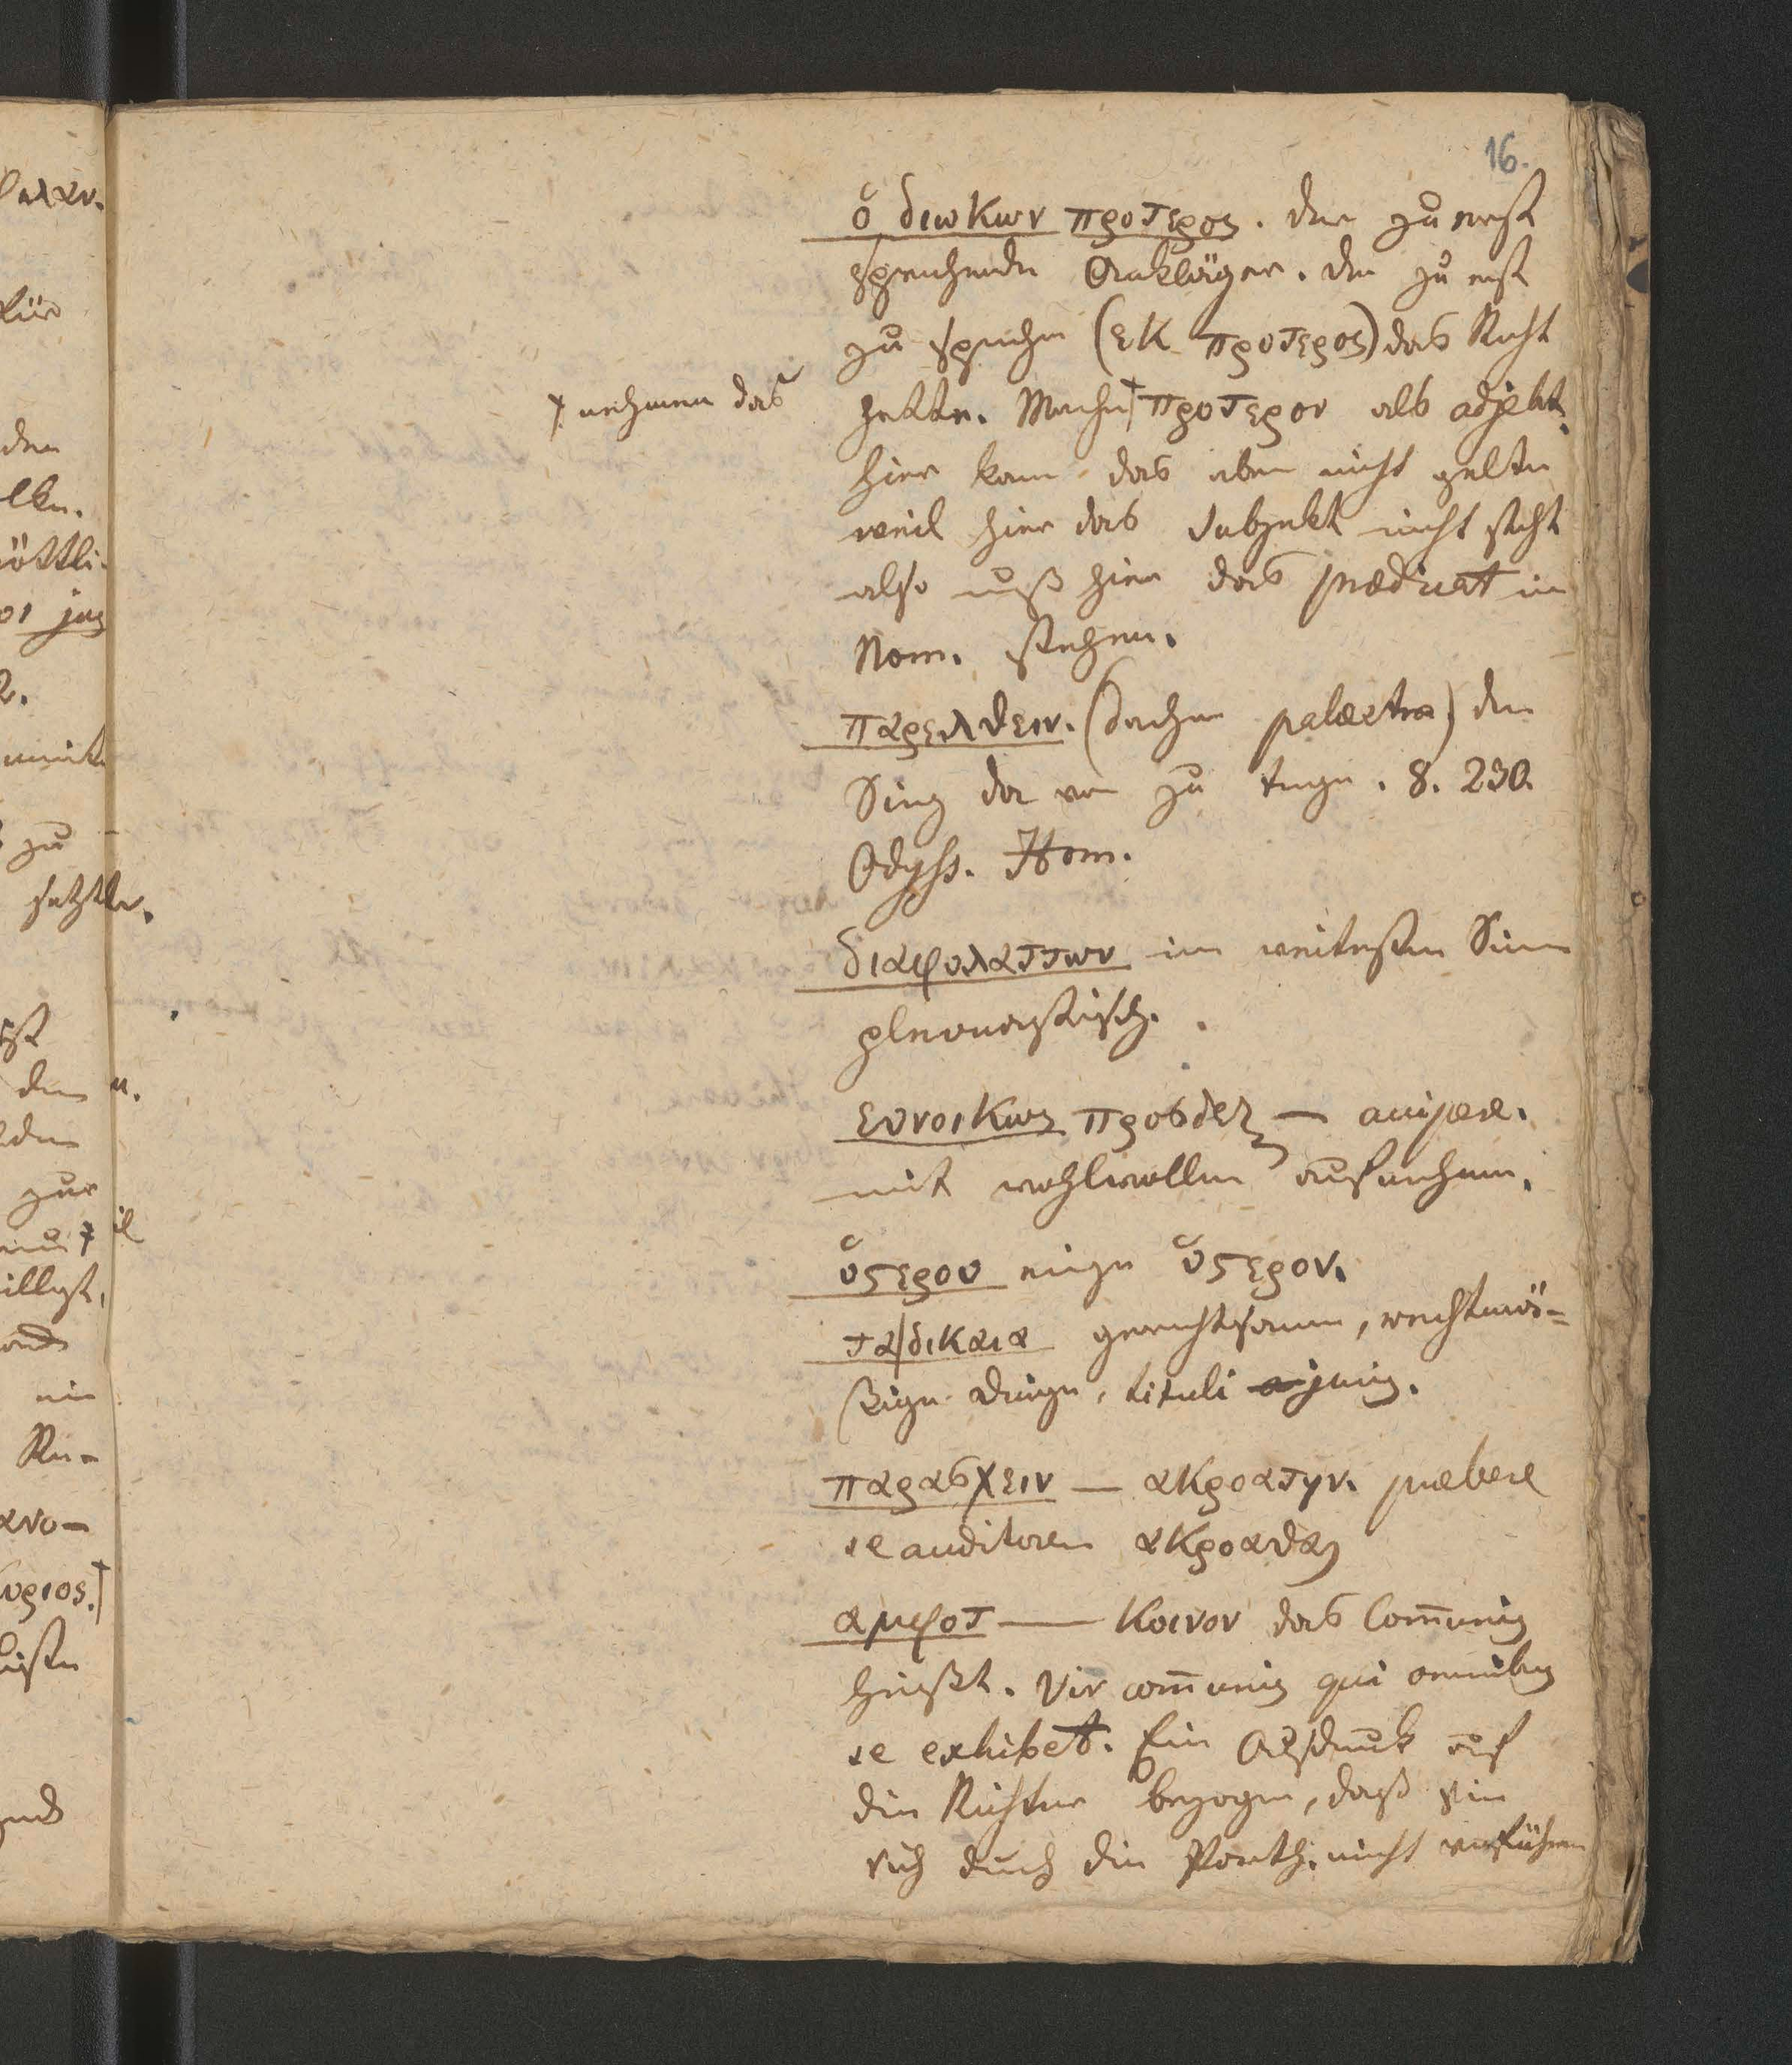 16.
ὁ διωκων προτερος. der zu erst
sprechende Ankläger. der zu erst
zu sprechen (εκ προτερος) das Recht
hatte. Manche † προτερον als adjekt.
† nehmen das
hier kann das aber nicht gelten
weil hier das Subjekt nicht steht
also muß hier das prædicat in
Nom. stehen.
παρελθειν. (Sachen palæstra) den
Sieg da von zu tragen. 8. 230.
Odyss. Hom.
διαφυλαττων im weitesten Sinn
pleonastisch.
ευνοικως προσδεξ — accipere.
mit wohlwollen aufnehmen.
ὑςερου einige ὑςερον.
τα|δικαια gerechtsame, rechtmä-
ßige Dinge, tituli juris.
παρασχειν — ακροατην. præbere
se auditorem ακροασθαι
αμφοτ — κοινον das Com̄unis
heißt. Vir com̄unis qui omnibus
se exhibet. Ein Ausdruck auf
die Richter bezogen, daß sie
sich durch die Parth. nicht verführen